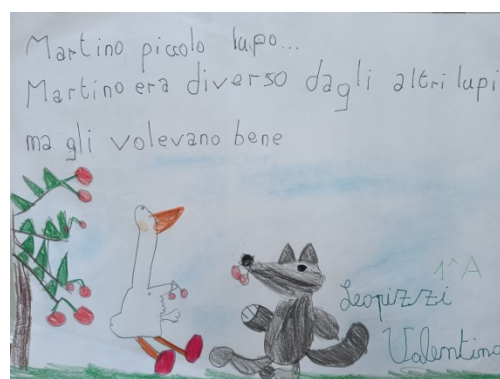 Martino piccolo lupo...
Martino era diverso dagli altri lupi
ma gli volevano bene
1^A
Leopizzi
Valentino